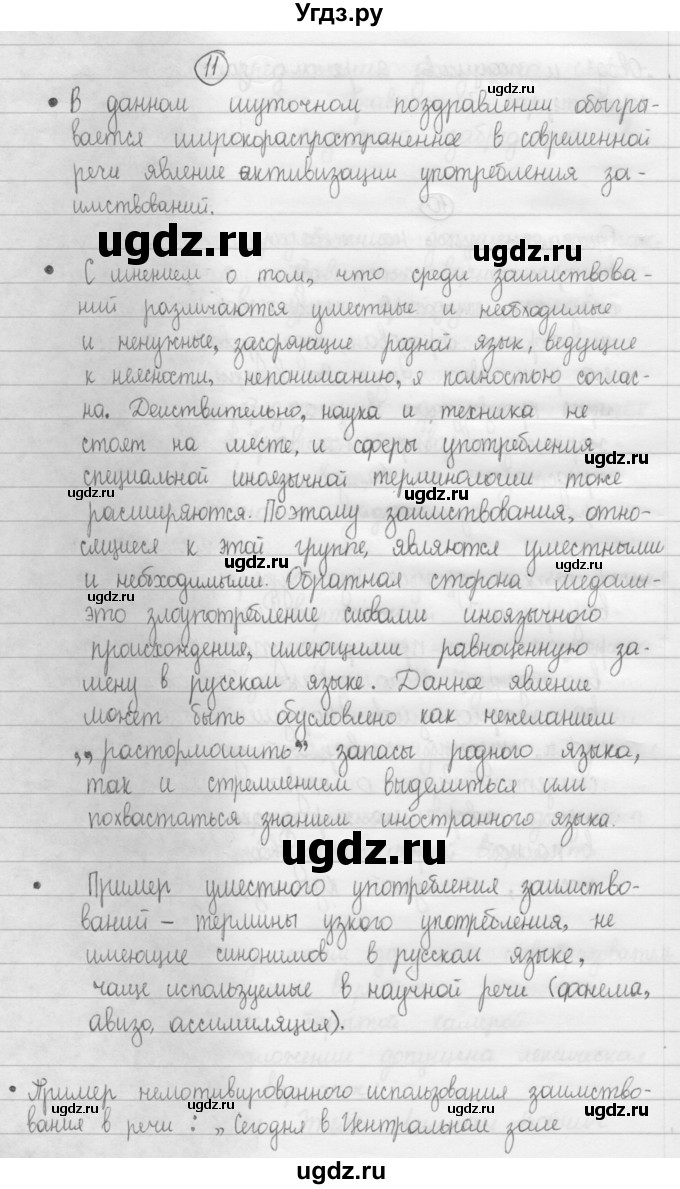 Угдз.ру
11
ugdz.ru
• В данном шуточном поздравлении обыгры-
вается широкораспространенное в современной
ugdz.ru
речи явление активизации употребления за-
имствований.
ugdz.ru
ugdz.ru
• С мнением о том, что среди заимствова-
ний различаются уместные и необходимые
и ненужные, засоряющие родной язык, ведущие
к неясности, непониманию, я полностью соглас-
на. Действительно, наука и техника не
стоят на месте, и сферы употребления
ugdz.ru
специальной иноязычной терминологии тоже
ugdz.ru
ugdz.ru
расширяются. Поэтому заимствования, отно-
сящиеся к этой группе, являются уместными
ugdz.ru
и необходимыми. Обратная сторона медали-
ugdz.ru
это злоупотребление словами иноязычного
происхождения, имеющими равноценную за-
ugdz.ru
мену в русском языке. Данное явление
может быть обусловлено как нежеланием
„растормошить” запасы родного языка,
так и стремлением выделиться или
похвастаться знанием иностранного языка.
ugdz.ru
• Пример уместного употребления заимство-
ваний – термины узкого употребления, не
имеющие синонимов в русском языке,
чаще используемые в научной речи (фонема,
авизо, ассимиляция).
• Пример немотивированного использования заимство-
ugdz.ru
ugdz.ru
ugdz.ru
вания в речи: „Сегодня в Центральном зале
ugdz.ru